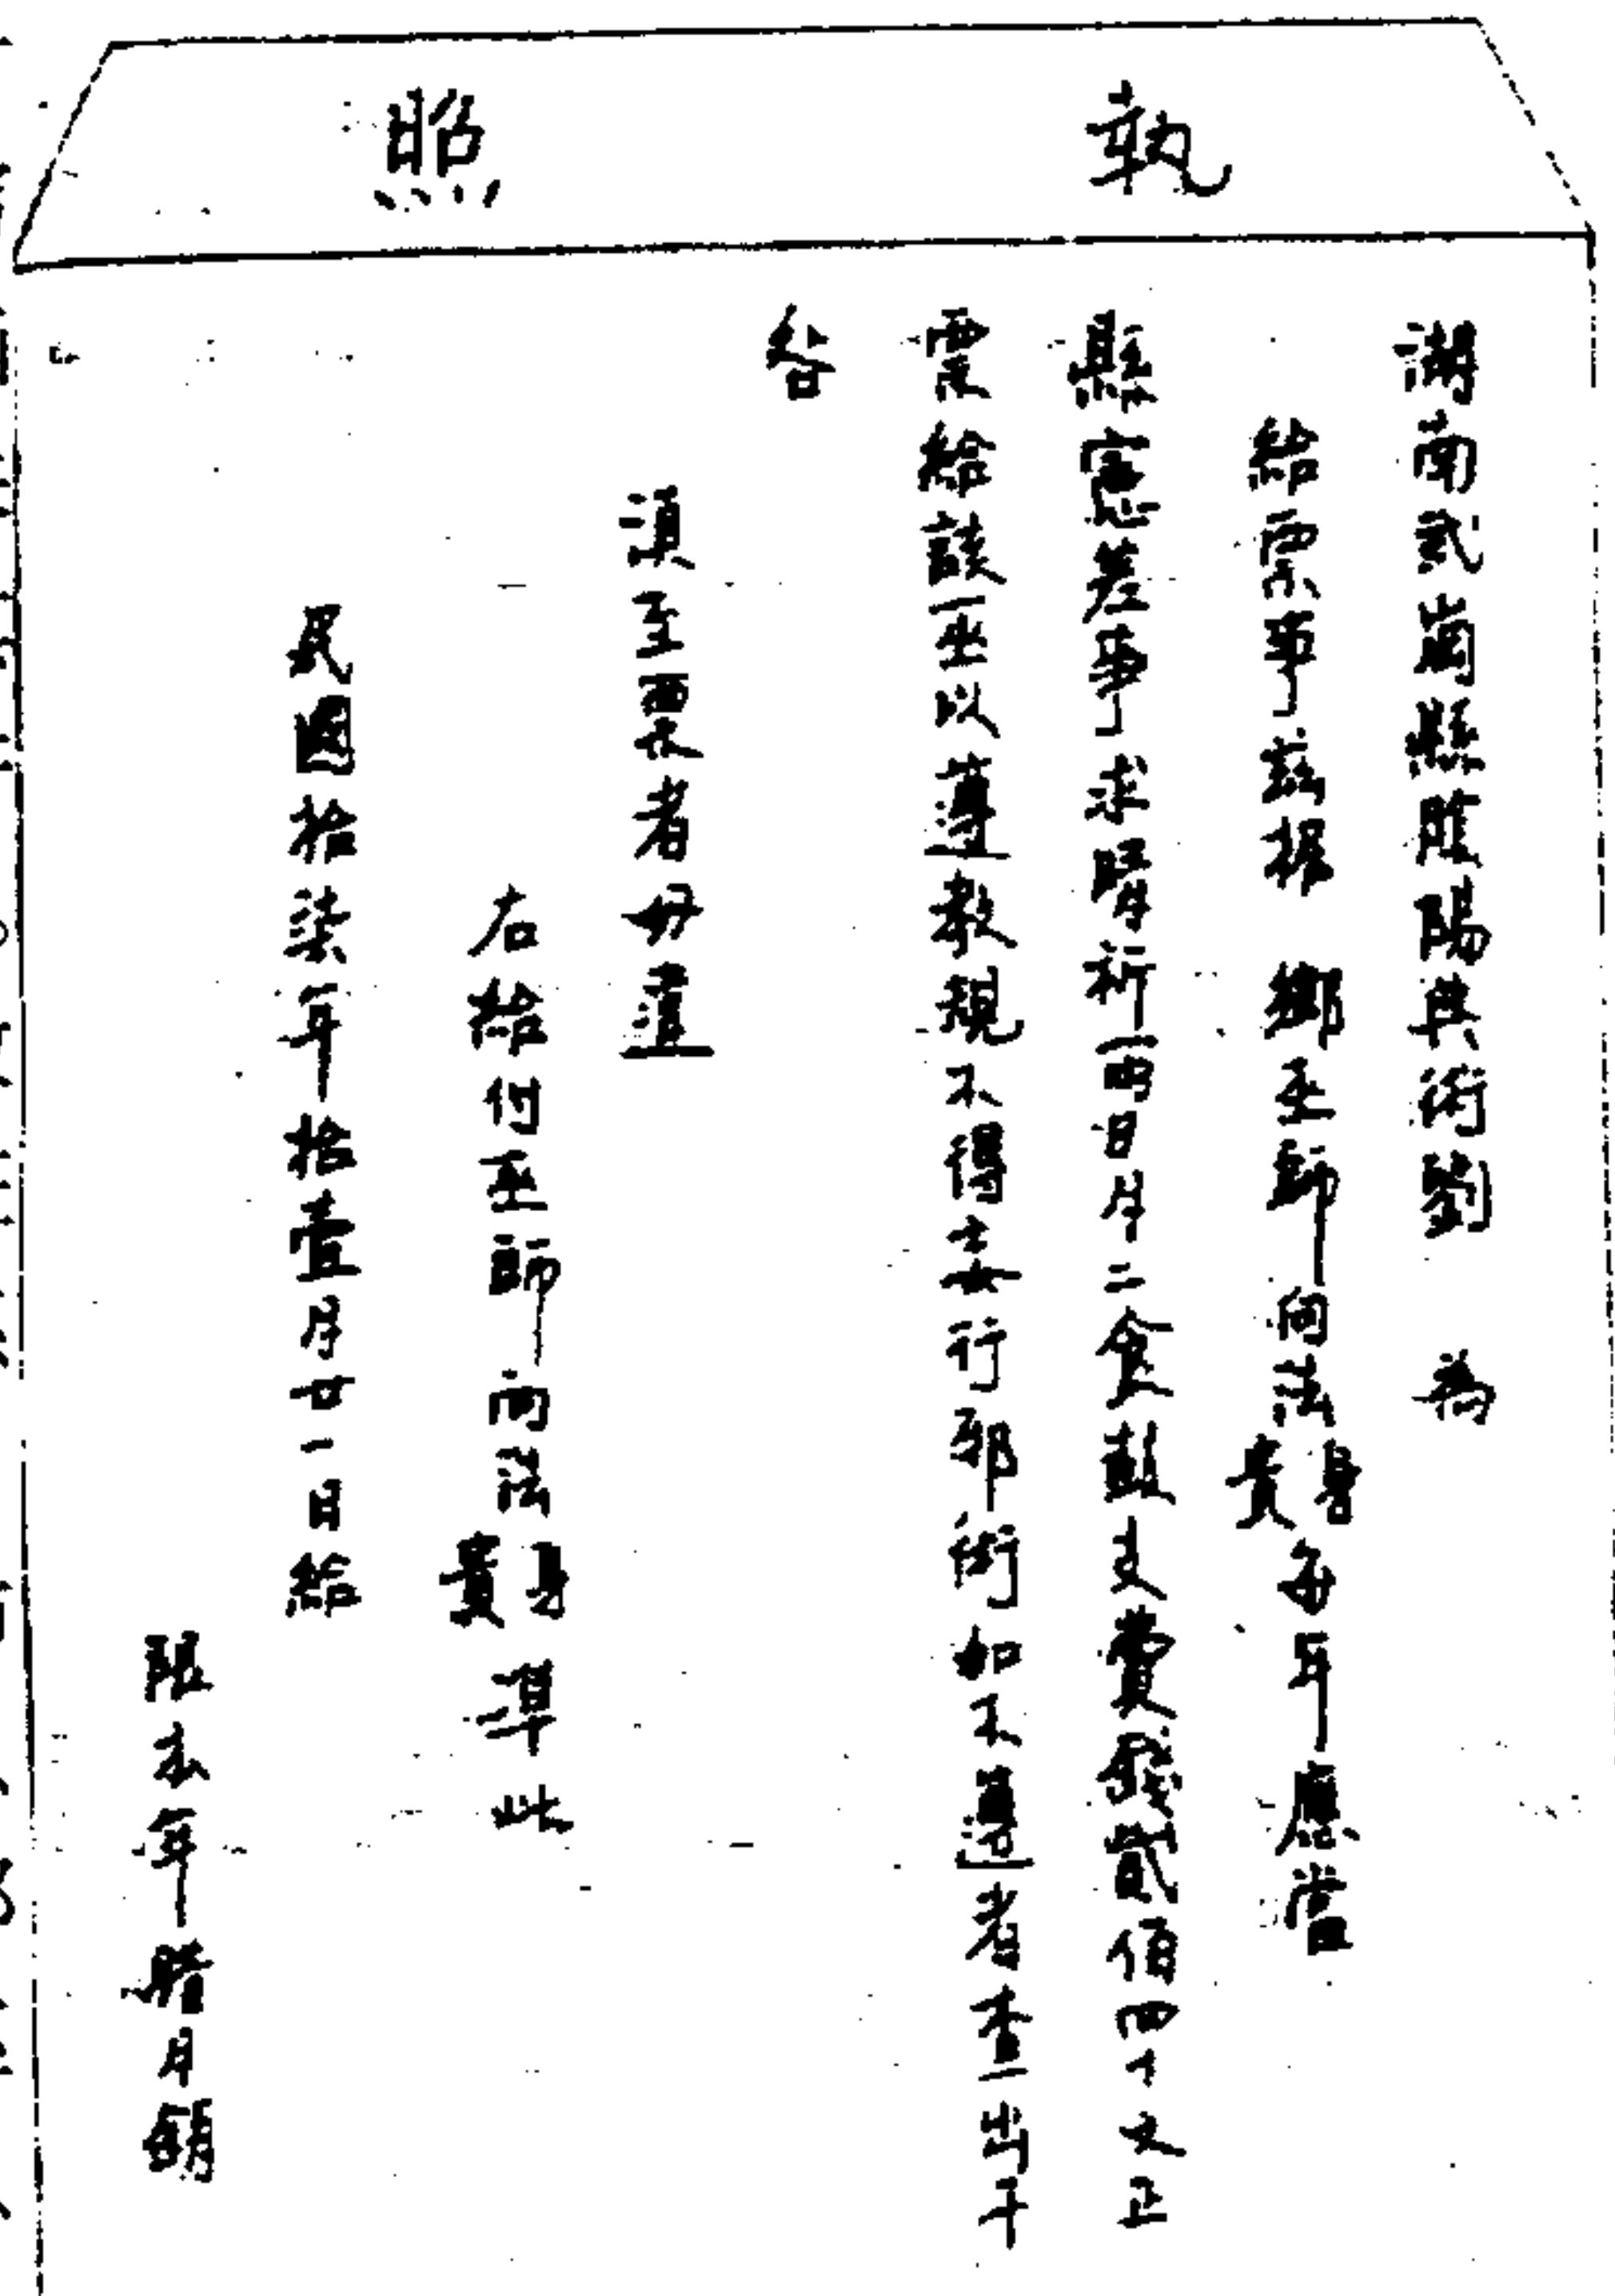 執照
湖南武岡縣陰陽典術劉 為
給票事茲據 鄉巫師向法昌貴每年應當
縣憲差事求晴祈雨日月二食鼓支費錢貳佰四十文正
票給該巫以遵教規不得妄行邪術如不遵者查出干
咎
須至票者毋違
右給付巫師向法昌貴準此
民國拾柒年拾壹月廿一日給
限去年腊月銷